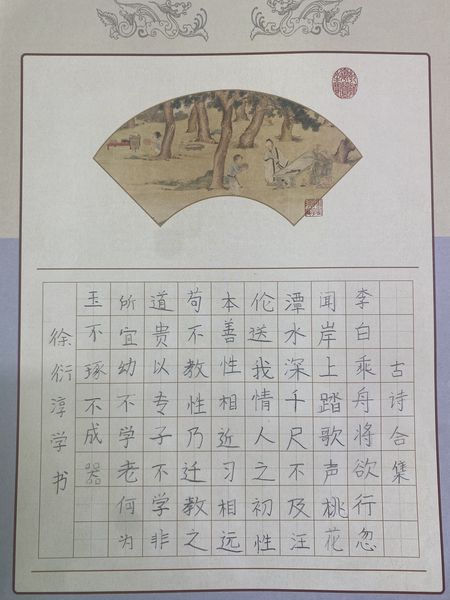 古诗合集
李白乘舟将欲行忽
闻岸上踏歌声桃花
潭水深千尺不及汪
伦送我情人之初性
本善性相近习相远
苟不教性乃迁教之
道贵以专子不学非
所宜幼不学老何为
玉不琢不成器
徐衍淳学书